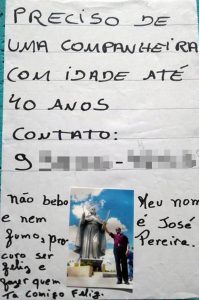 PRECISO DE
UMA COMPANHEIRA
COM IDADE ATÉ
40 ANOS
CONTATO:
9
não bebo
e nem
fumo, pro
coro ser
feliz e
fazer quem
Ta comigo Feliz.
Meu nom
é José
Pereira.